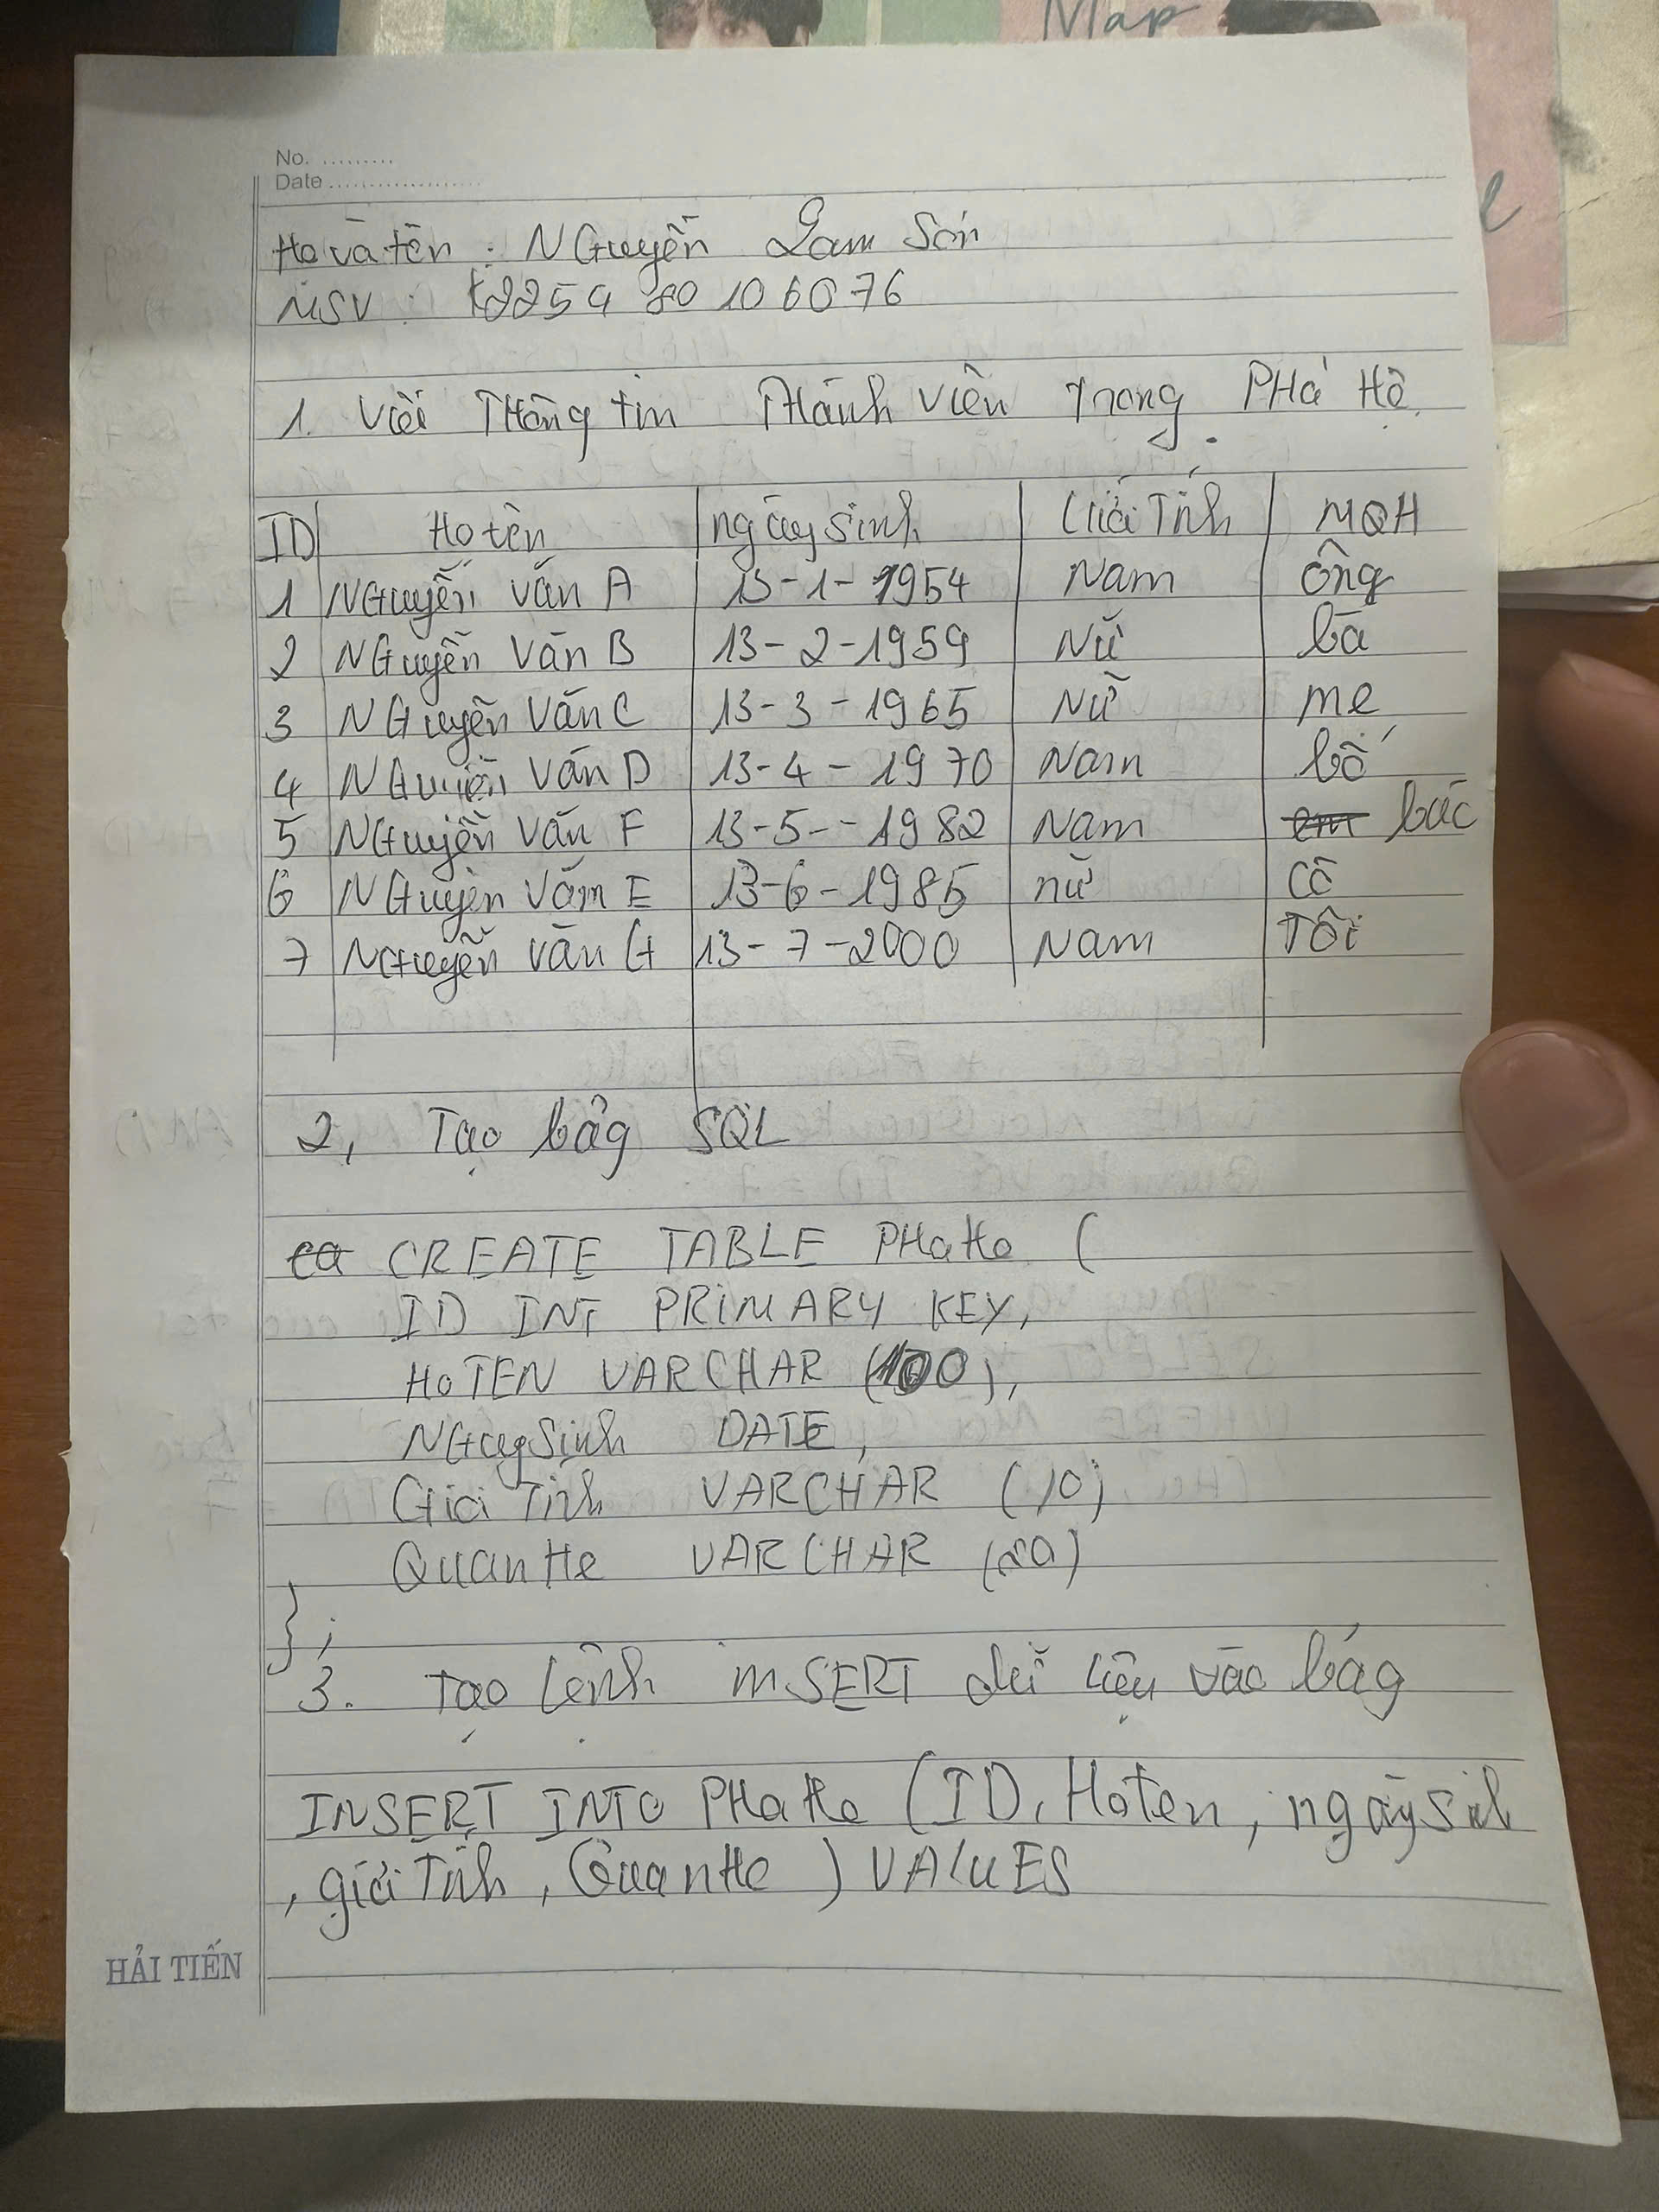 Map
No. .........
Date ...................
Họ và tên : NGuyễn Lam Sơn
MSV : K225480106076
1. Viết THông tin THành viên Trong PHả Hệ.
ID Họ tên ngày sinh Giới Tính MQH
1 NGuyễn Văn A 13-1-1954 Nam ông
2 NGuyễn Văn B 13-2-1959 Nữ bà
3 NGuyễn Văn C 13-3-1965 Nữ mẹ
4 NGuyễn Văn D 13-4-1970 Nam bố
5 NGuyễn Văn F 13-5--1982 Nam em bác
6 NGuyễn Văn E 13-6-1985 nữ cô
7 NGuyễn Văn G 13-7-2000 Nam Tôi
2, Tạo bảg SQL
ca CREATE TABLE PHaHe (
ID INT PRIMARY KEY,
HoTEN VARCHAR (100),
NGaySinh DATE,
GioiTinh VARCHAR (10)
QuanHe VARCHAR (20)
};
3. Tạo lệnh INSERT dữ liệu vào bảg
INSERT INTO PHaHe (ID, Hoten, ngàysinh
, giớiTính, QuanHe ) VALUES
HẢI TIẾN